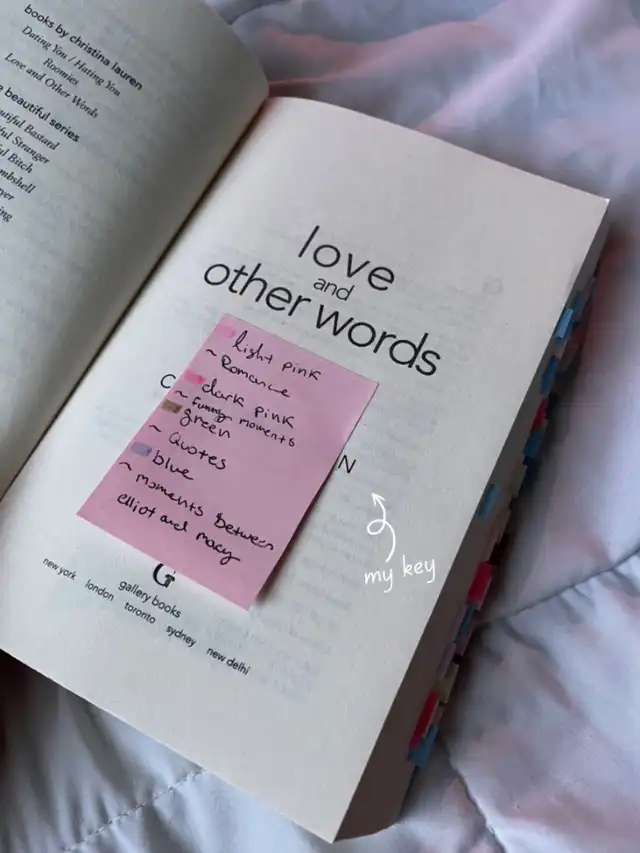 books by christina lauren
Dating You / Hating You
Roomies
Love and Other Words
beautiful series
Beautiful Bastard
Stranger
Bitch
love
and
other words
light pink
~ Romance
dark pink
~ funny moments
green
~ Quotes
blue
~ moments between
elliot and macy
C
N
my key
G
gallery books
new york london toronto sydney new delhi